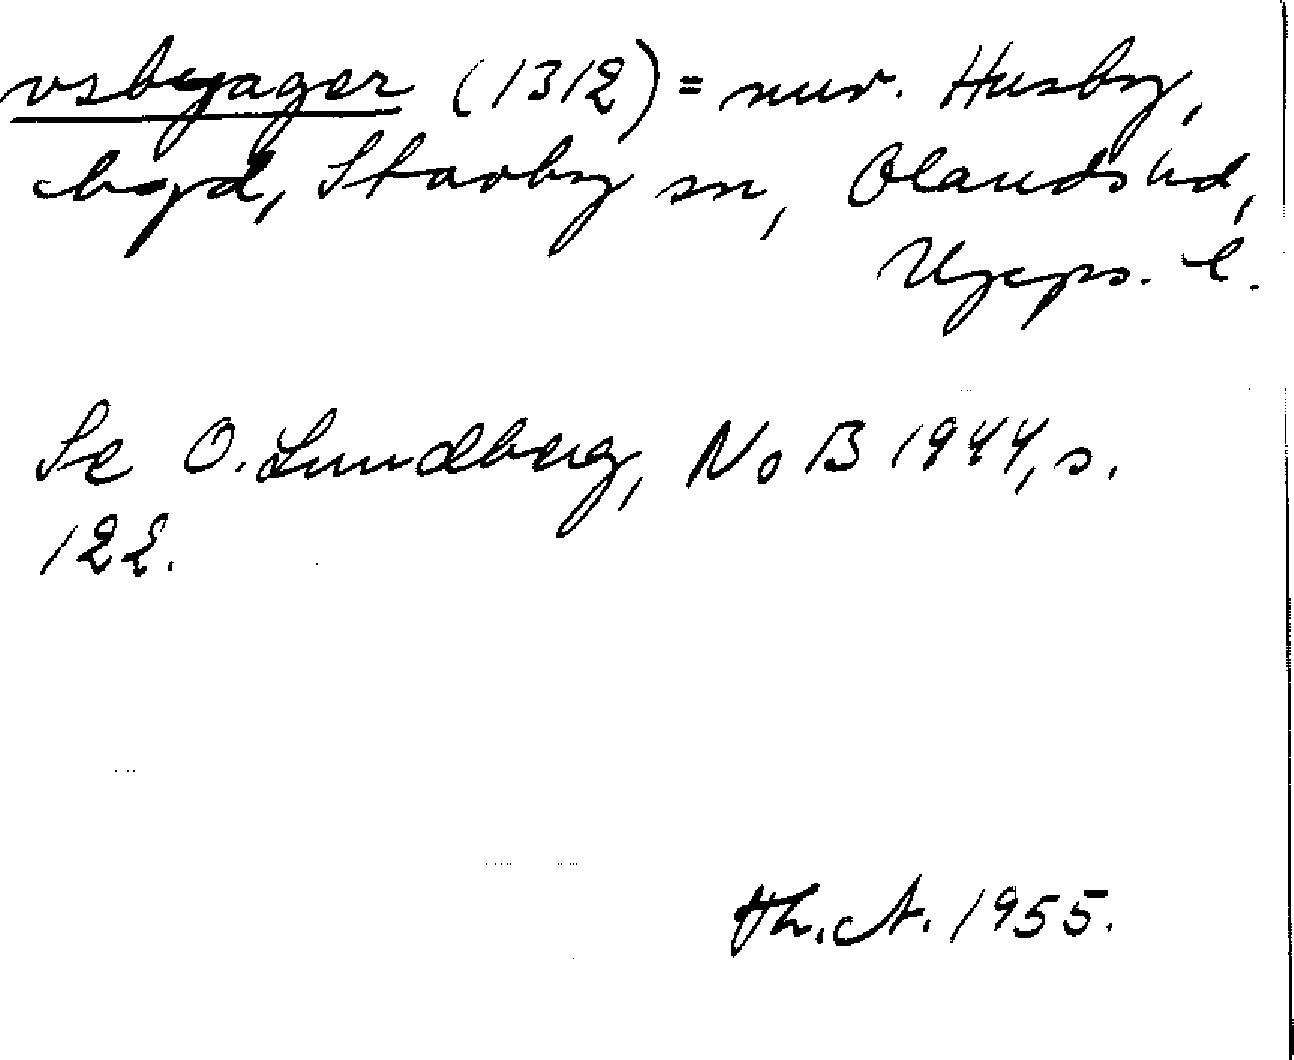 vsbyager (1312) = nuv. Husby,
bgd, Stavby sn, Olands hd,
Upps. l.
Se O. Lundberg, NoB 1944, s.
122.
Th. A. 1955.